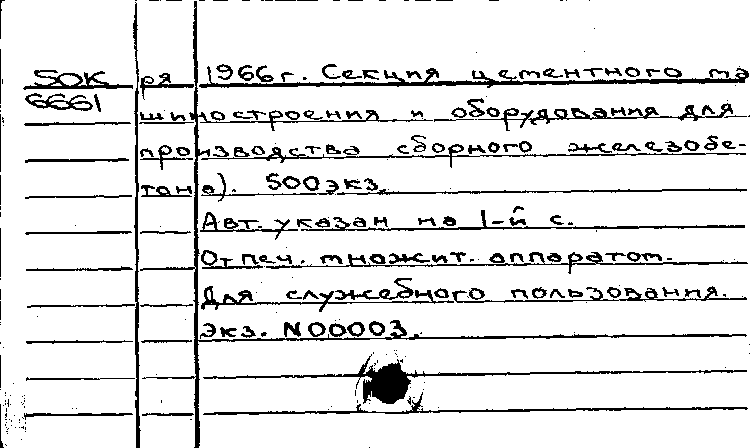 50К ря 1966г. Секция цементного ма
6661
шиностроения и оборудования для
производства сборного железобе-
тона). 500экз.
Авт. указан на 1-й с.
Отпеч. множит. аппаратом.
Для служебного пользования.
Экз. N00003.